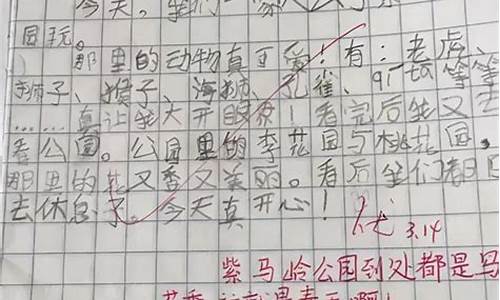 今天，我们一家人去了
园玩。
那里的动物真可爱！有：老虎、
狮子、猴子、海狮、孔雀、等等
……真让我大开眼界！看完后我又去
看公园。公园里的李花园与桃花园，
那里的花又香又美丽。看后我们都回
去休息了。今天真开心！
优 3.14
紫马岭公园到处都是鸟